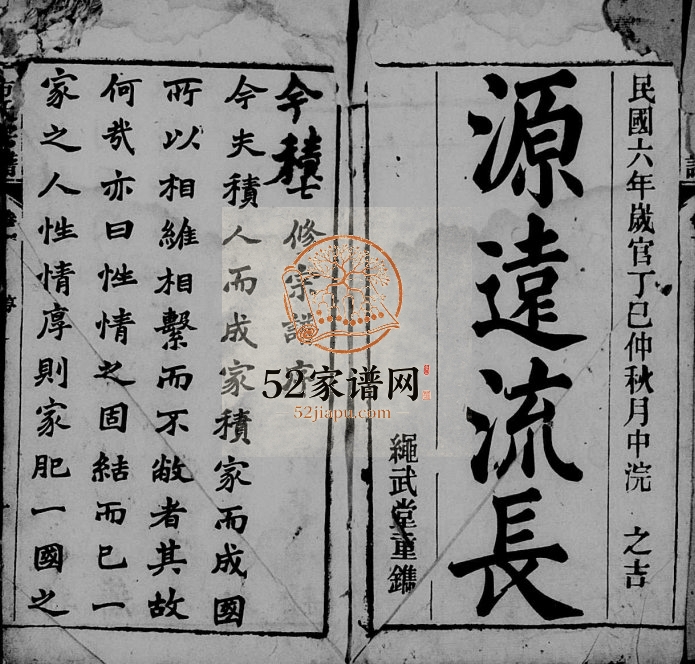 民國六年歲官丁巳仲秋月中浣 之吉
源遠流長
繩武堂重鐫
七修宗譜
今夫積人而成家積家而成國
所以相維相繫而不敝者其故
何哉亦曰性情之固結而已一
家之人性情厚則家肥一國之
今
積
52家谱网
52jiapu.com